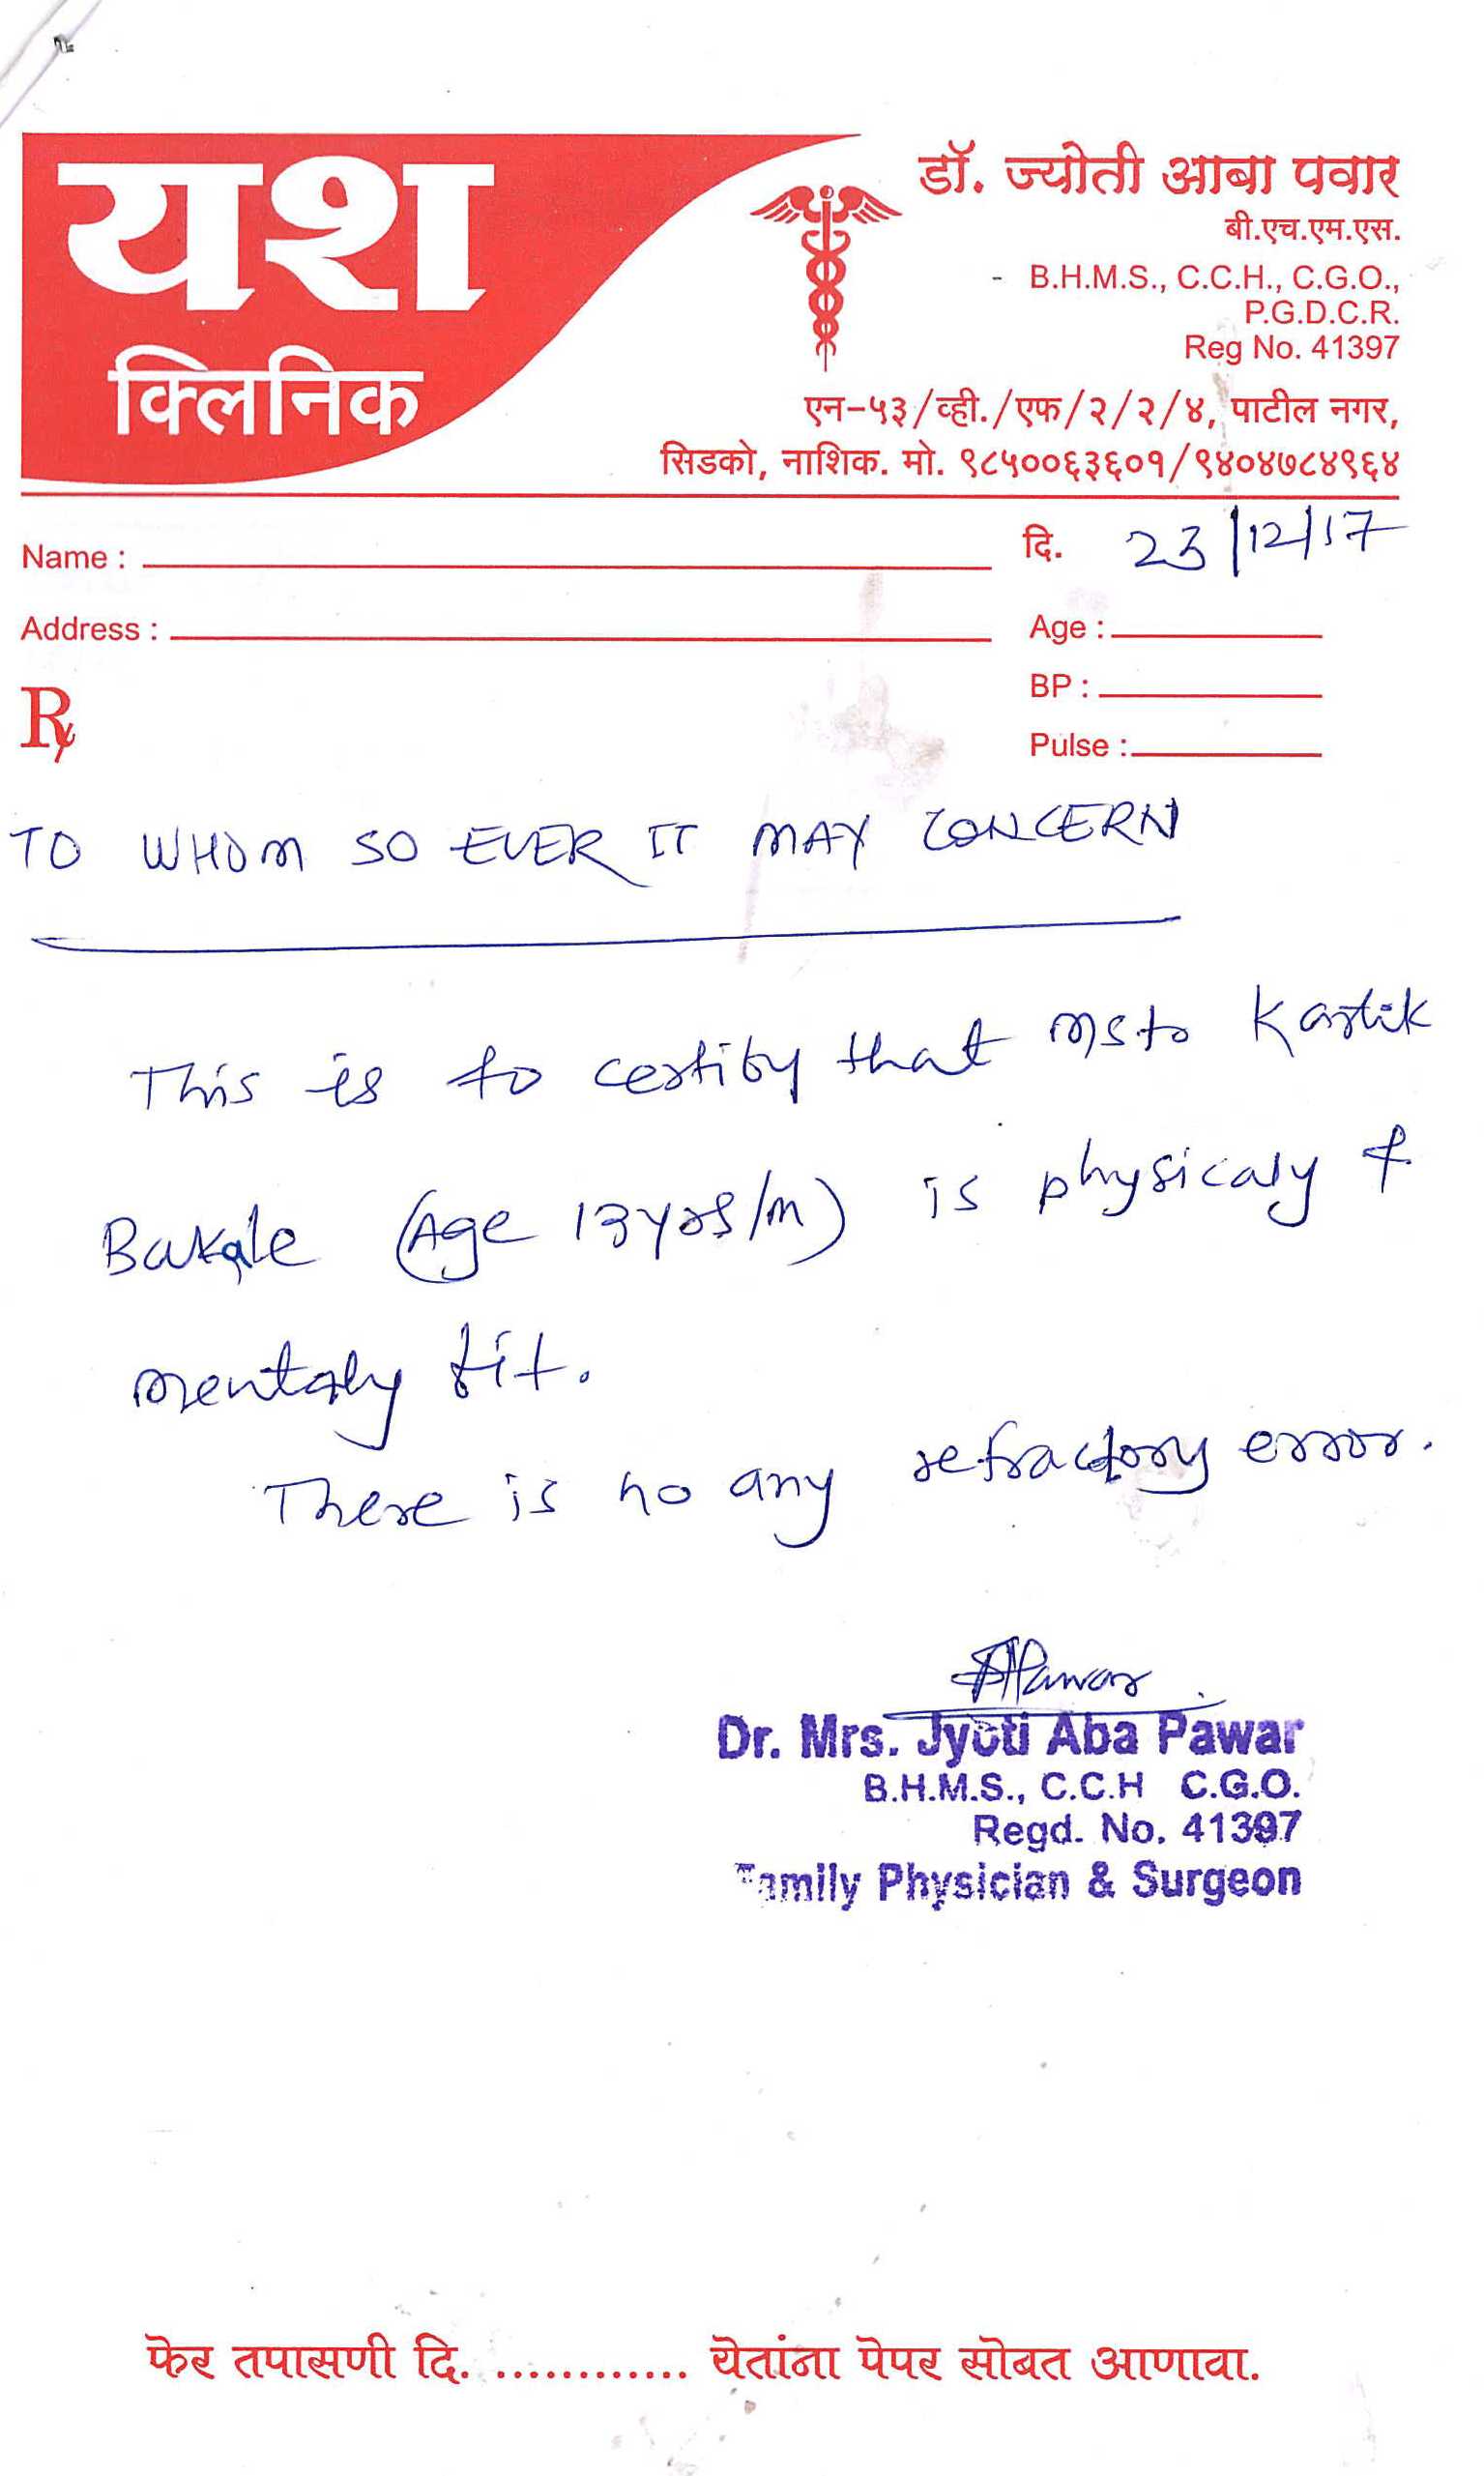 यश
क्लिनिक
डॉ. ज्योती आबा पवार
बी.एच.एम.एस.
- B.H.M.S., C.C.H., C.G.O.,
P.G.D.C.R.
Reg No. 41397
एन-५३/व्ही./एफ/२/२/४, पाटील नगर,
सिडको, नाशिक. मो. ९८५००६३६०१/९४०४७८४९६४
Name :
दि. 23/12/17
Address :
Age :
BP :
Rx
Pulse :
TO WHOM SO EVER IT MAY CONCERN
This is to certify that Mstr Kartik
Bakale (Age 13yrs/m) is physicaly &
mentaly fit.
There is no any refractory error.
APawar
Dr. Mrs. Jyoti Aba Pawar
B.H.M.S., C.C.H C.G.O.
Regd. No. 41397
Family Physician & Surgeon
फेर तपासणी दि. ............ येतांना पेपर सोबत आणावा.